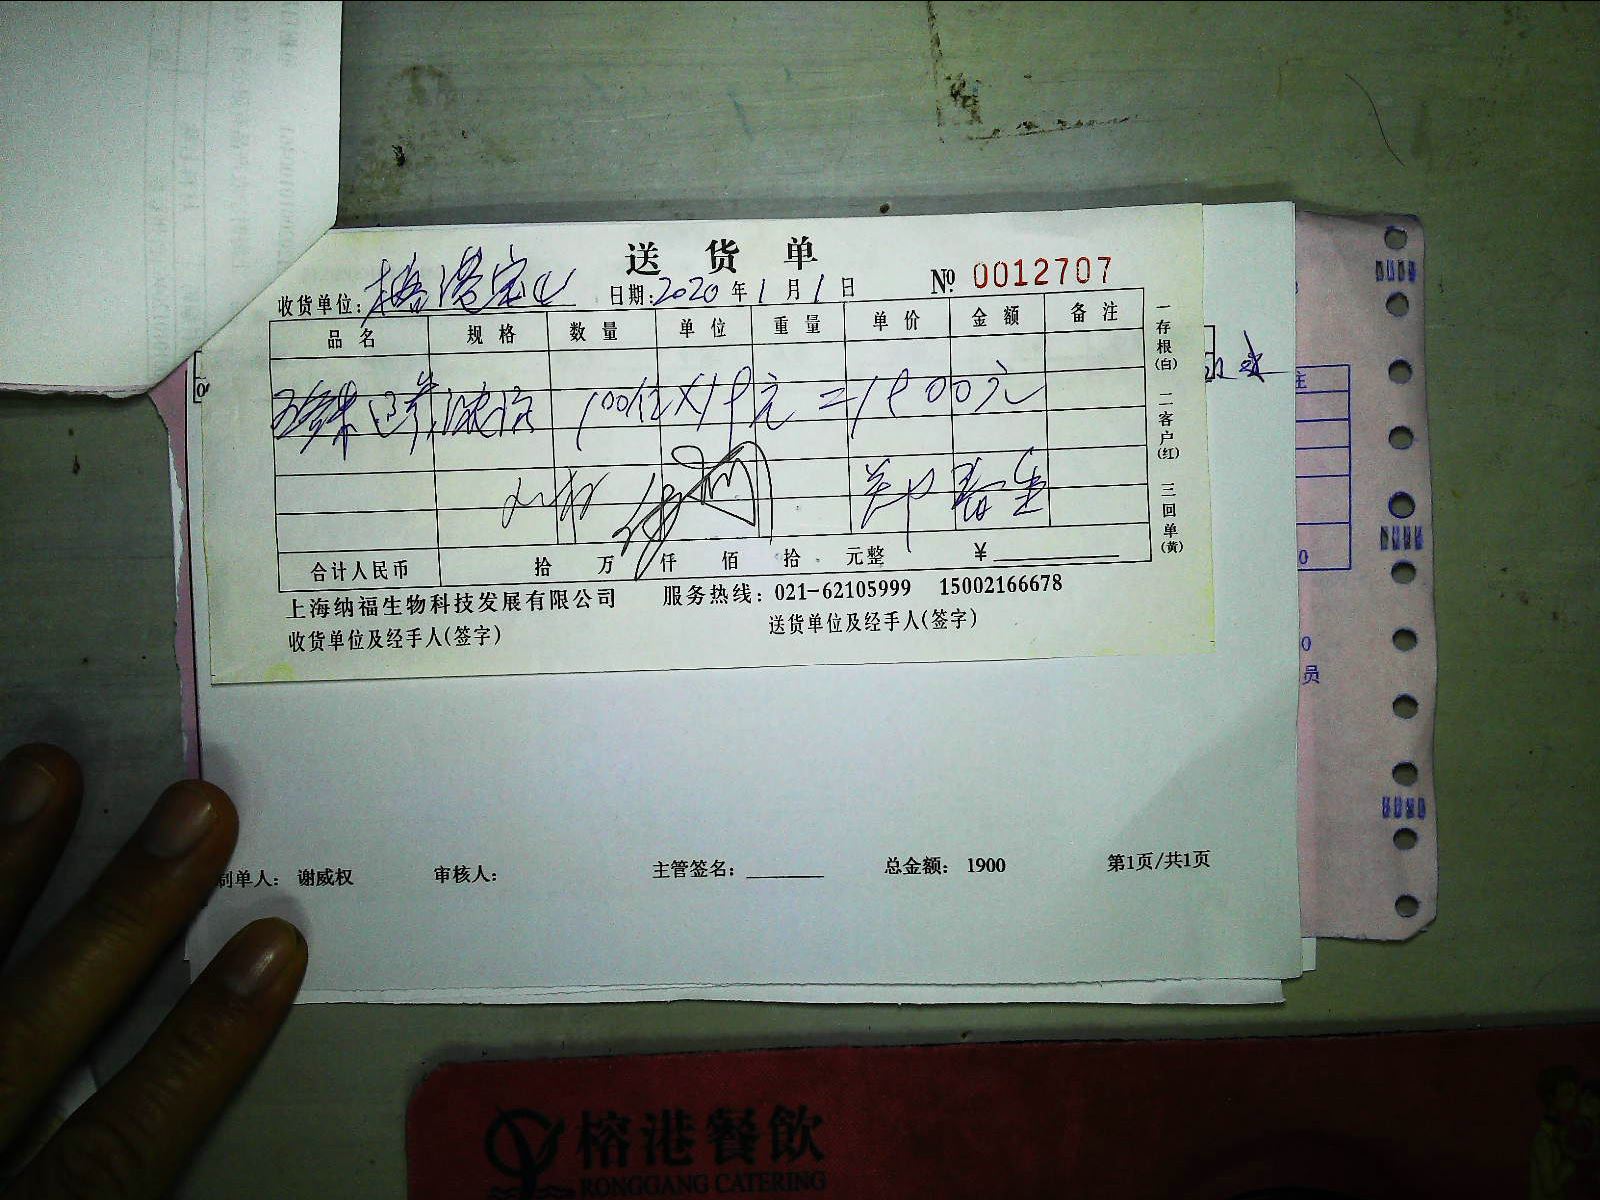 送货单
收货单位: 榕港宝山 日期: 2020年1月1日 № 0012707
品名 规格 数量 单位 重量 单价 金额 备注
100位×19元=1900元
合计人民币 拾 万 仟 佰 拾 元整 ¥
上海纳福生物科技发展有限公司 服务热线: 021-62105999 15002166678
收货单位及经手人(签字) 送货单位及经手人(签字)
一存根(白) 二客户(红) 三回单(黄)
制单人: 谢威权 审核人: 主管签名: 总金额: 1900 第1页/共1页
0
员
榕港餐飲
RONGGANG CATERING